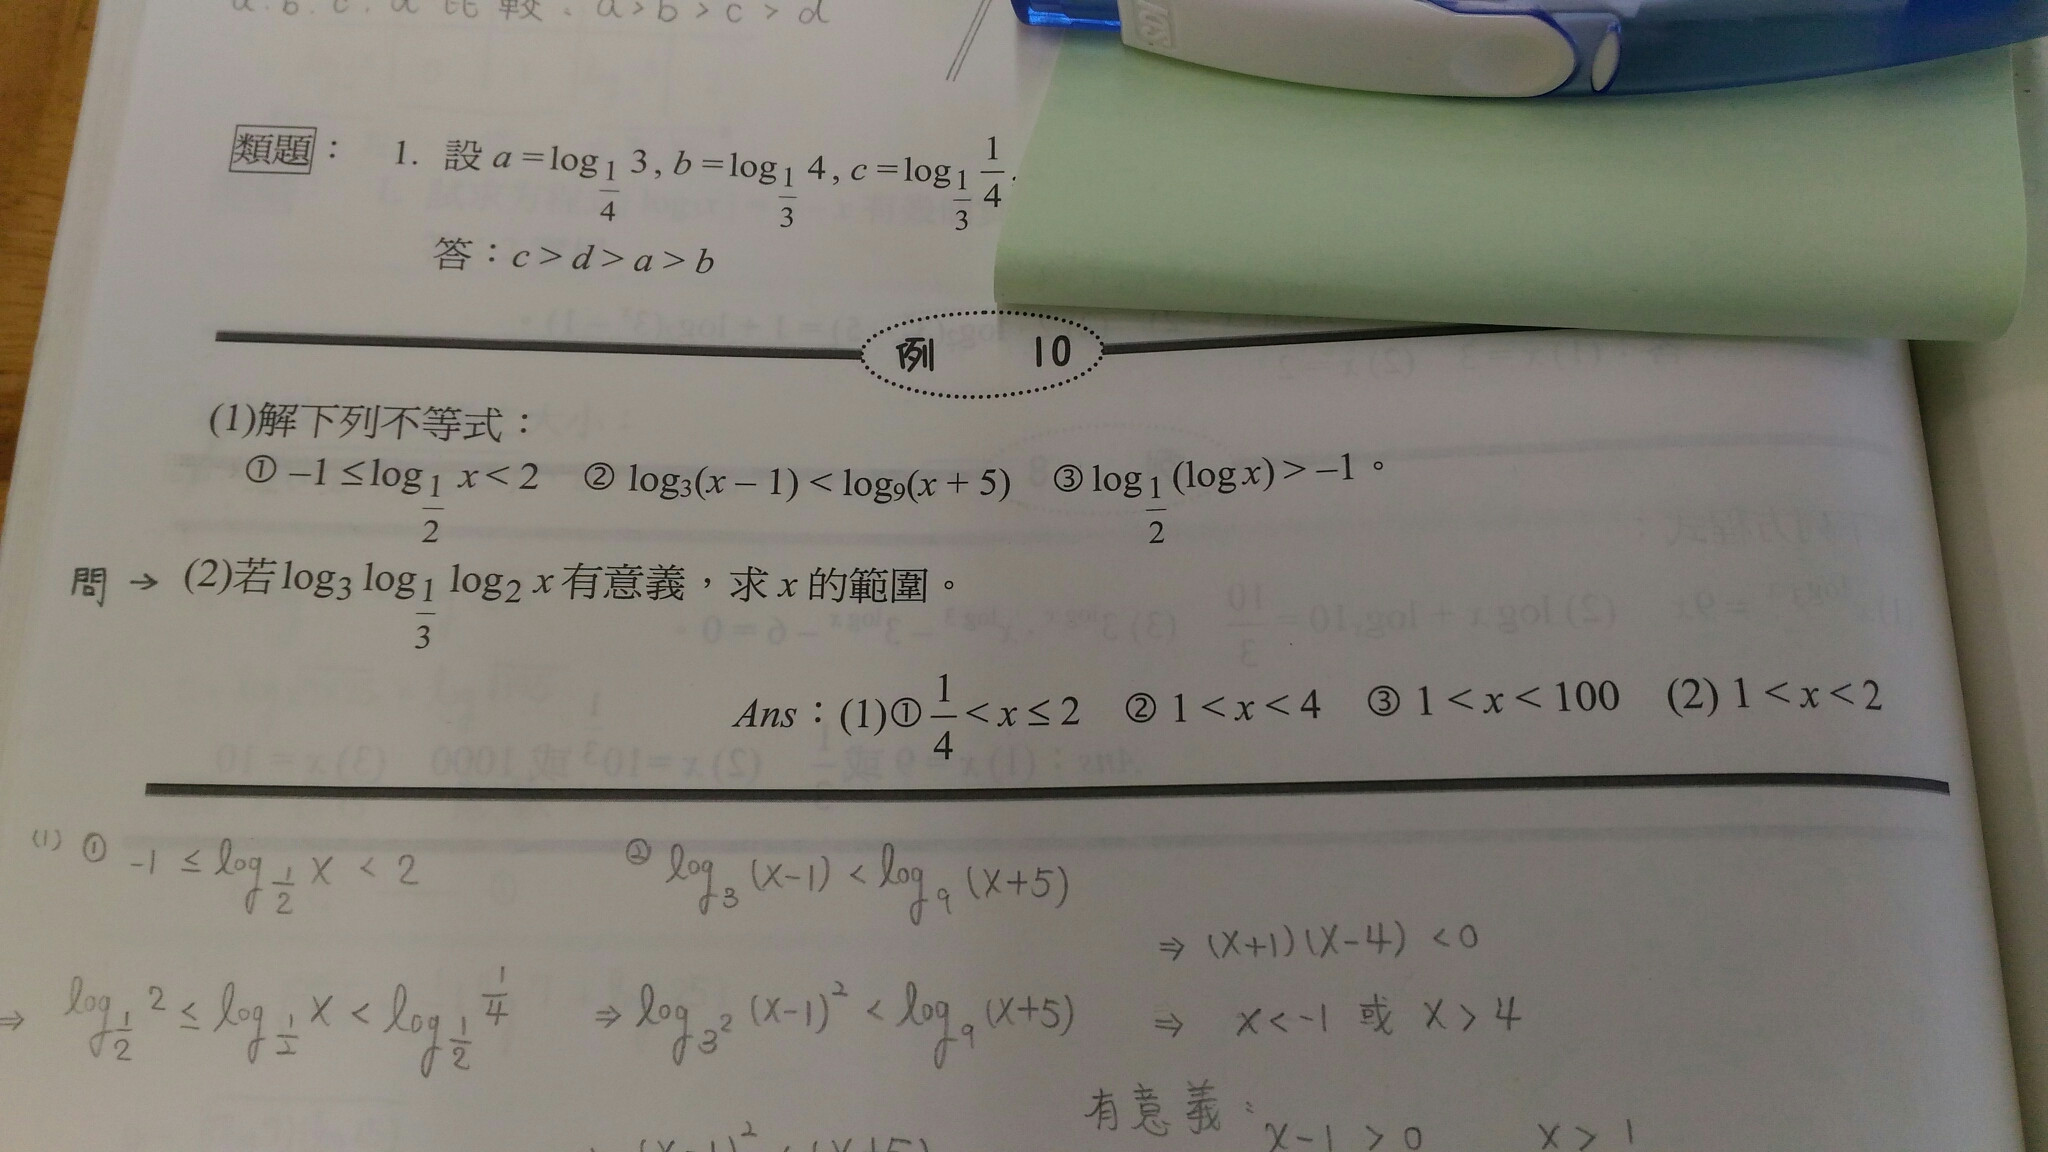 a.b.c.d 比較：a>b>c>d
類題： 1. 設 a=log_{1/4} 3, b=log_{1/3} 4, c=log_{1/3} 1/4
答：c>d>a>b
例 10
(1)解下列不等式：
① –1 ≤ log_{1/2} x < 2 ② log₃(x – 1) < log₉(x + 5) ③ log_{1/2} (log x) > –1。
問 → (2)若 log₃ log_{1/3} log₂ x 有意義，求 x 的範圍。
Ans：(1)① 1/4 < x ≤ 2 ② 1 < x < 4 ③ 1 < x < 100 (2) 1 < x < 2
(1) ① -1 ≤ log_{1/2} x < 2 ② log₃ (x-1) < log₉ (x+5)
⇒ (x+1)(x-4) < 0
⇒ log_{1/2} 2 ≤ log_{1/2} x < log_{1/2} 1/4 ⇒ log_{3²} (x-1)² < log₉ (x+5) ⇒ x<-1 或 x>4
有意義：x-1>0 x>1